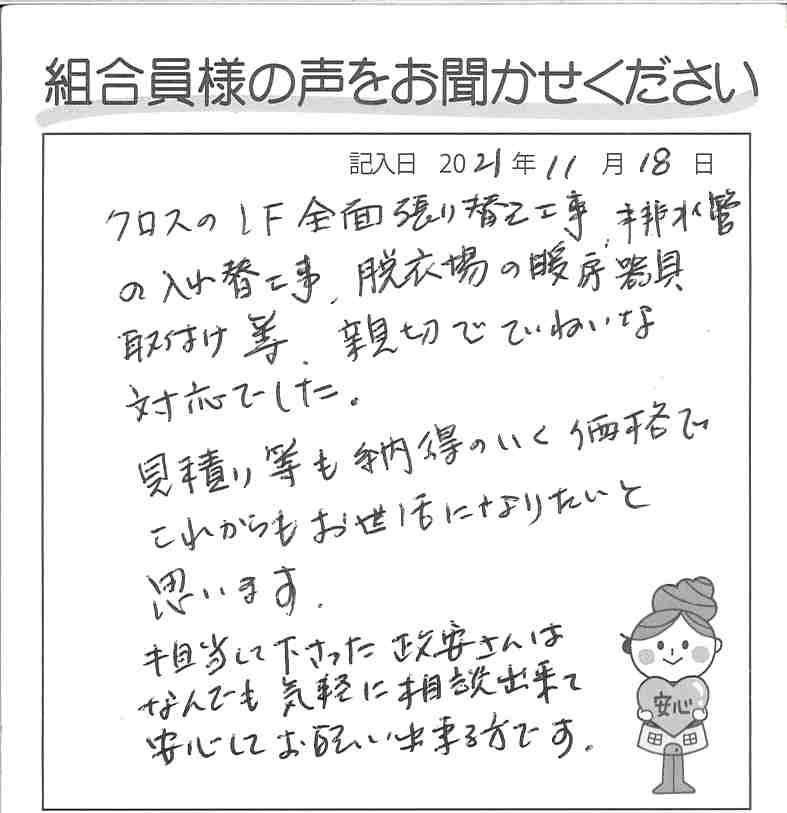 組合員様の声をお聞かせください
記入日 2021年11月18日
クロスの1F全面張り替え工事、排水管
の入れ替工事、脱衣場の暖房器具
取付け等、親切でていねいな
対応でした。
見積り等も納得のいく価格で
これからもお世話になりたいと
思います。
担当して下さった政安さんは
なんでも気軽に相談出来て
安心してお願い出来る方です。
安心